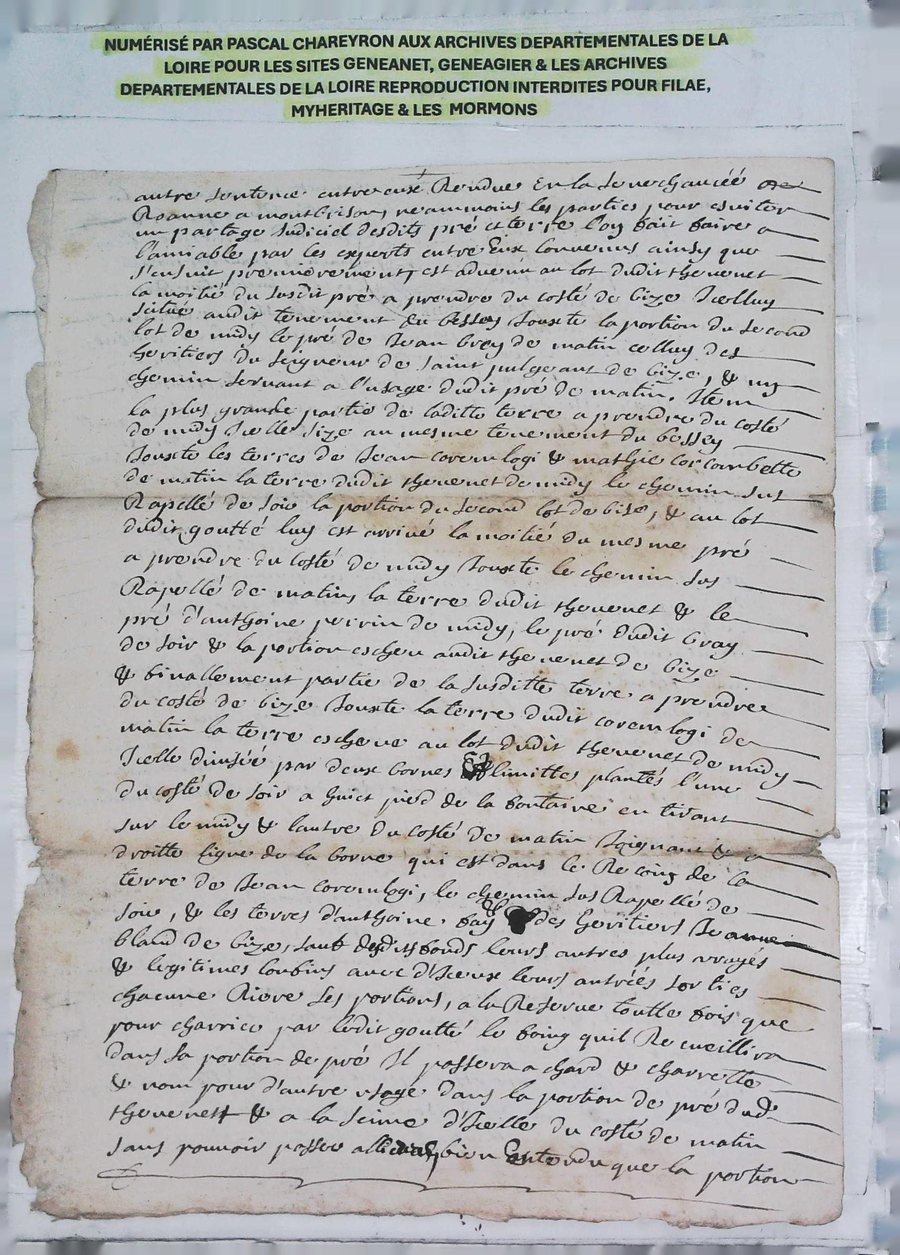 NUMÉRISÉ PAR PASCAL CHAREYRON AUX ARCHIVES DEPARTEMENTALES DE LA
LOIRE POUR LES SITES GENEANET, GENEAGIER & LES ARCHIVES
DEPARTEMENTALES DE LA LOIRE REPRODUCTION INTERDITES POUR FILAE,
MYHERITAGE & LES MORMONS
autre sentence entre eux Rendue En la senechaucéé de
Roanne a montbrison, neammoins les parties pour esviter
un partage Judiciel desdits pré et terre l'on fait faire a
l'amiable par les experts entre Eux Convenus ainsy que
s'ensuit premierement, est advenu au lot dudit thevenet
la moitié du susdit pré a prendre du costé de bize Icelluy
situé audit tenement du bessey Jouxte la portion du second
lot de midy le pré de Jean bray de matin celluy des
heritiers du seigneur de saint pulgeant de bize, & un
chemin servant a l'usage dudit pré de matin. Item
la plus grande partie de laditte terre a prendre du costé
de midy Icelle size au mesme tenement du bessey
Jouxte les terres de Jean coremlogi & mathie corcombette
de matin la terre dudit thevenet de midy le chemin sus
Rapellé de soir la portion du second lot de bize, & au lot
dudit goutté luy est arrivé la moitié du mesme pré
a prendre du costé de midy Jouxte le chemin sus
Rapellé de matin, la terre dudit thevenet & le
pré d'anthoine perrin de midy, le pré dudit bray
de soir & la portion escheu audit thevenet de bize
& finallement partie de la susditte terre a prendre
du costé de bize Jouxte la terre dudit coremlogi de
matin la terre escheue au lot dudit thevenet de midy
Icelle divisée par deux bornes & limittes plantés l'une
du costé de soir a huict pied de la fontaine en tirant
sur le midy & lautre du costé de matin Joignant &
droitte ligne de la borne qui est dans le Recoing de la
terre de Jean coremlogi, le chemin sus Rapellé de
soir, & les terres d'anthoine fay des heritiers
bland de bize, sauf desdits fonds leurs autres plus vrayes
& legitimes confins avec d'Iceux leurs antréés sorties
chacune Riere ses portions, a la Reserve toutte fois que
pour charrier par ledit goutté le foing quil Recueillira
dans sa portion de pré Il passera a chard & charrette
& nom pour d'autre usage dans la portion de pré dud
thevenet & a la sinne d'Icelle du costé de matin
sans pouvoir passer bien Entendu que la portion